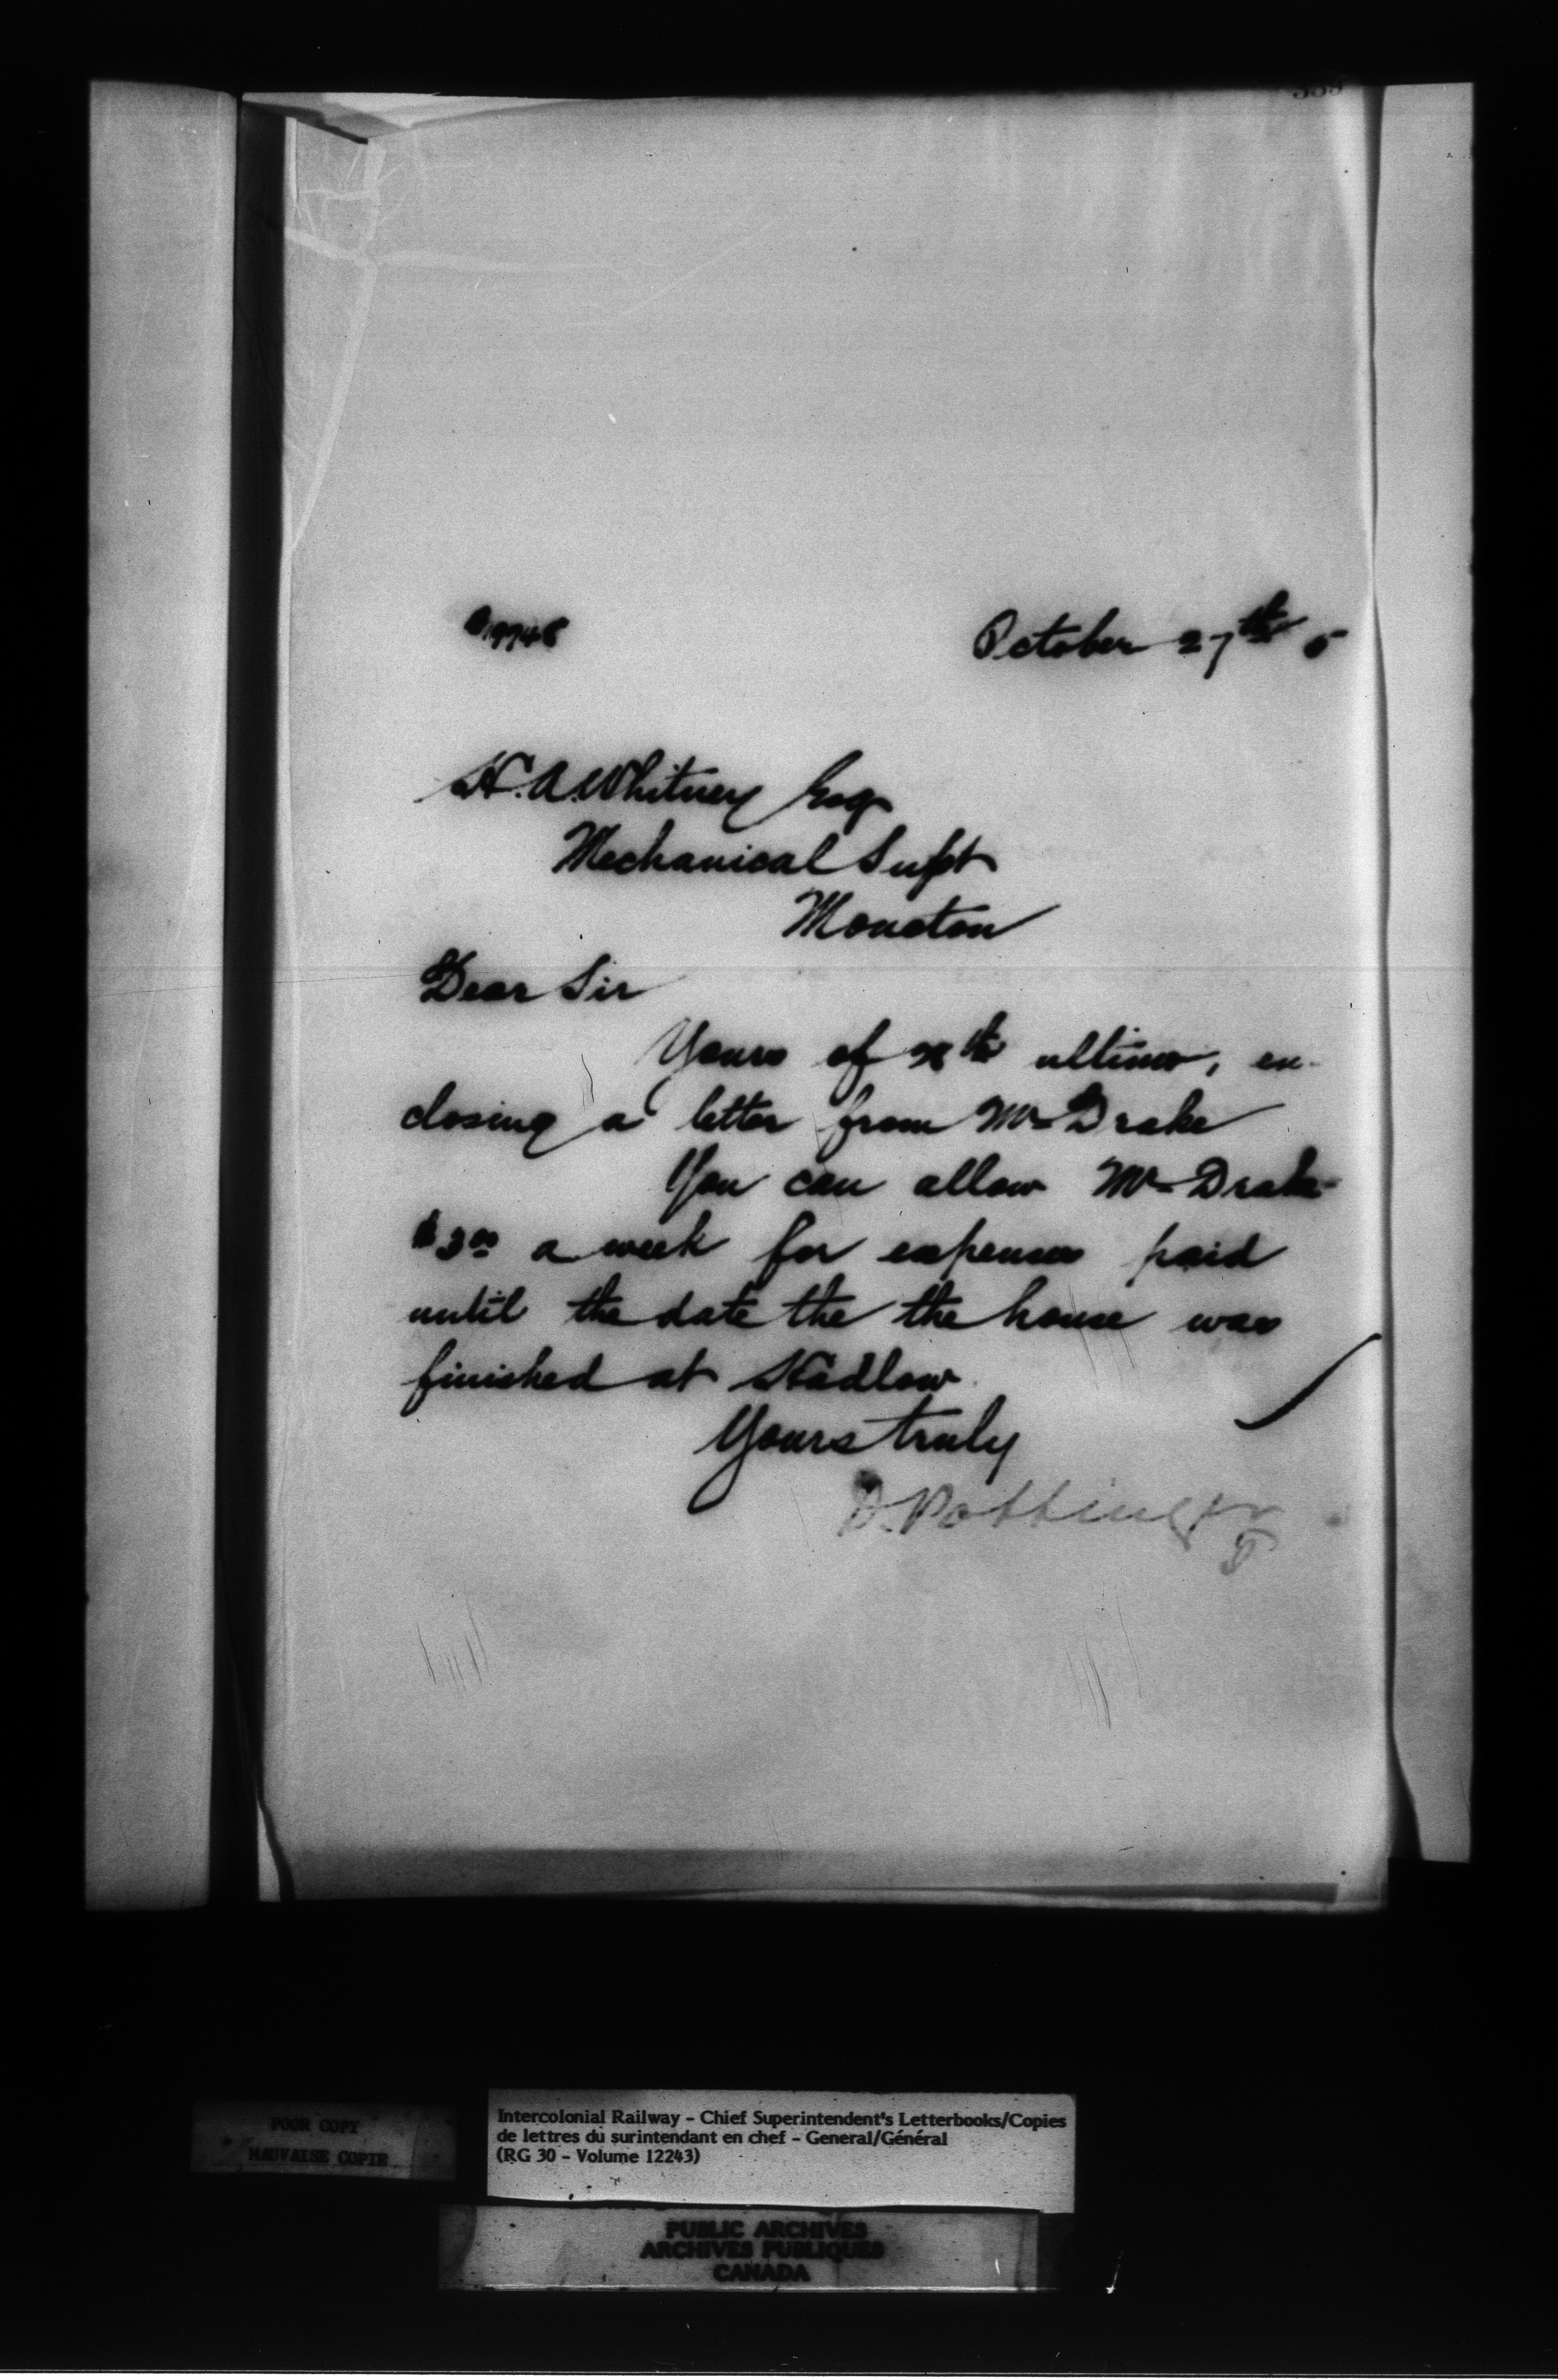 October 27th 5
H. A. Whitney Esq
Mechanical Supt
Moncton
Dear Sir
Yours of 28th ultimo, en-
closing a letter from Mr Drake
You can allow Mr Drake
$3.00 a week for expenses paid
until the date the the house was
finished at Hadlow
Yours truly
D. Pottinger
POOR COPY
MAUVAISE COPIE
Intercolonial Railway - Chief Superintendent's Letterbooks/Copies
de lettres du surintendant en chef - General/Général
(RG 30 - Volume 12243)
PUBLIC ARCHIVES
ARCHIVES PUBLIQUES
CANADA